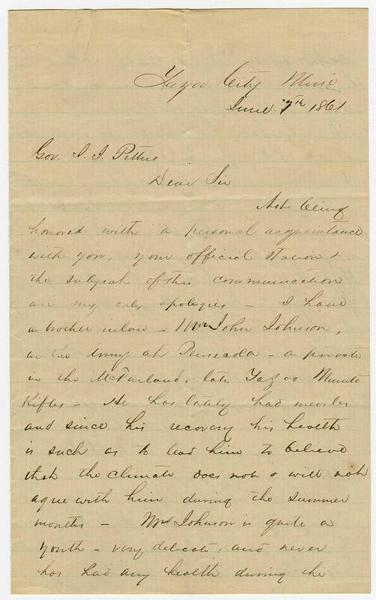 Yazoo City Miss
June 7th 1861
Gov. J. J. Pettus
Dear Sir
Not being
honored with a personal acquaintance
with you, your official station &
the subject of this communication
are my only apologies - I have
a brother in law - Wm John Johnson,
in the Army at Pensacola - a private
in the McFarland, late Yazoo Minute
Rifles - He has lately had measles
and since his recovery his health
is such as to lead him to believe
that the climate does not & will not
agree with him during the summer
months - Mr Johnson is quite a
youth - very delicate, and never
has had any health during the